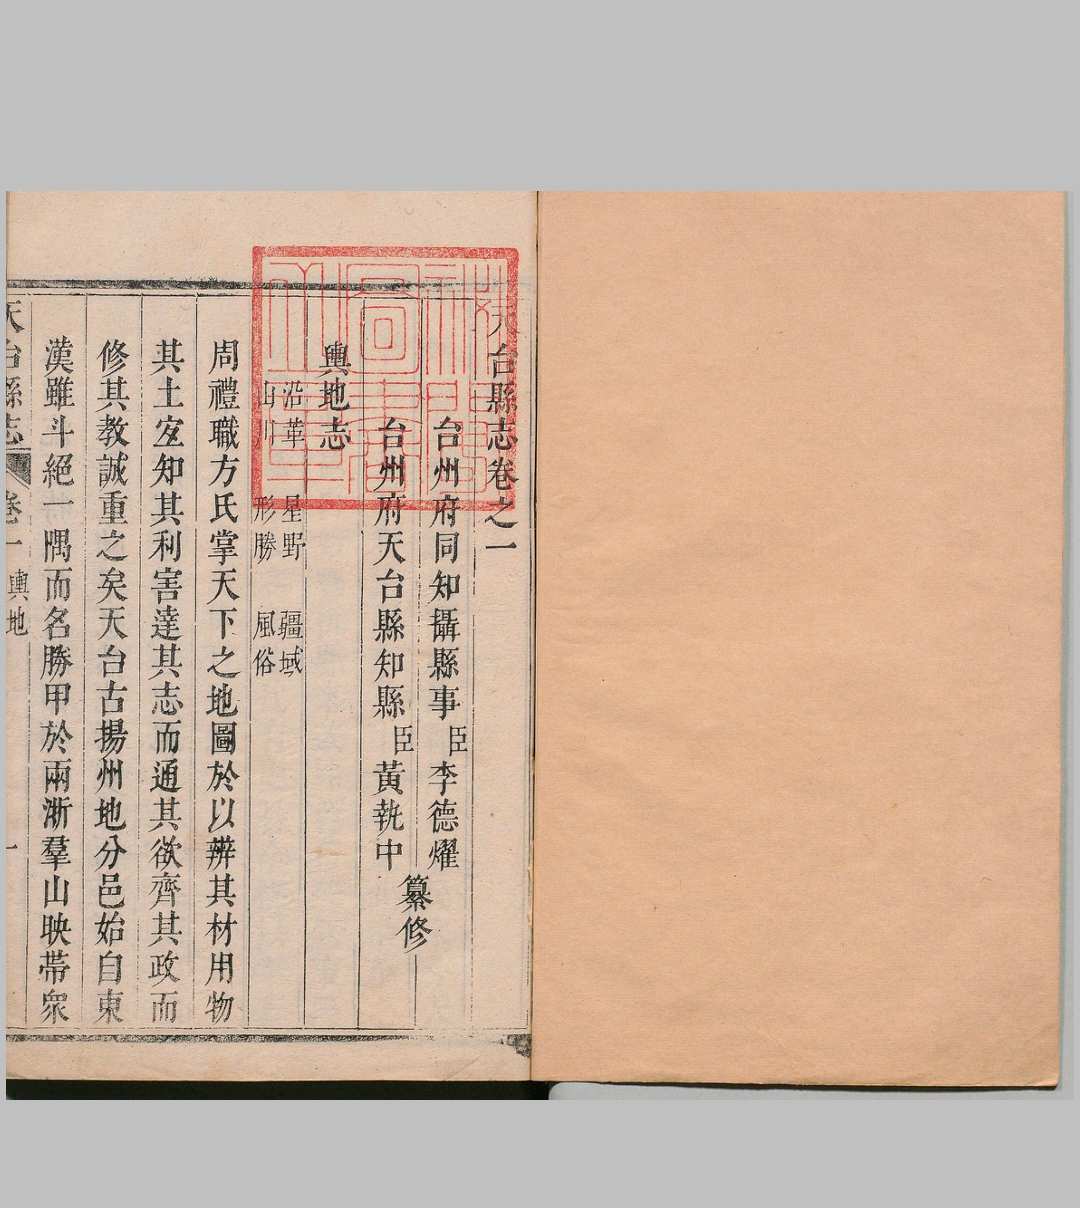 天台縣志卷之一
台州府同知攝縣事臣李德燿
台州府天台縣知縣臣黃執中
纂修
輿地志
沿革　星野　疆域
山川　形勝　風俗
周禮職方氏掌天下之地圖於以辨其材用物
其土宐知其利害達其志而通其欲齊其政而
修其教誠重之矣天台古揚州地分邑始自東
漢雖斗絕一隅而名勝甲於兩浙羣山映帶衆
天台縣志　卷一　輿地　一
秘閣圖書之章